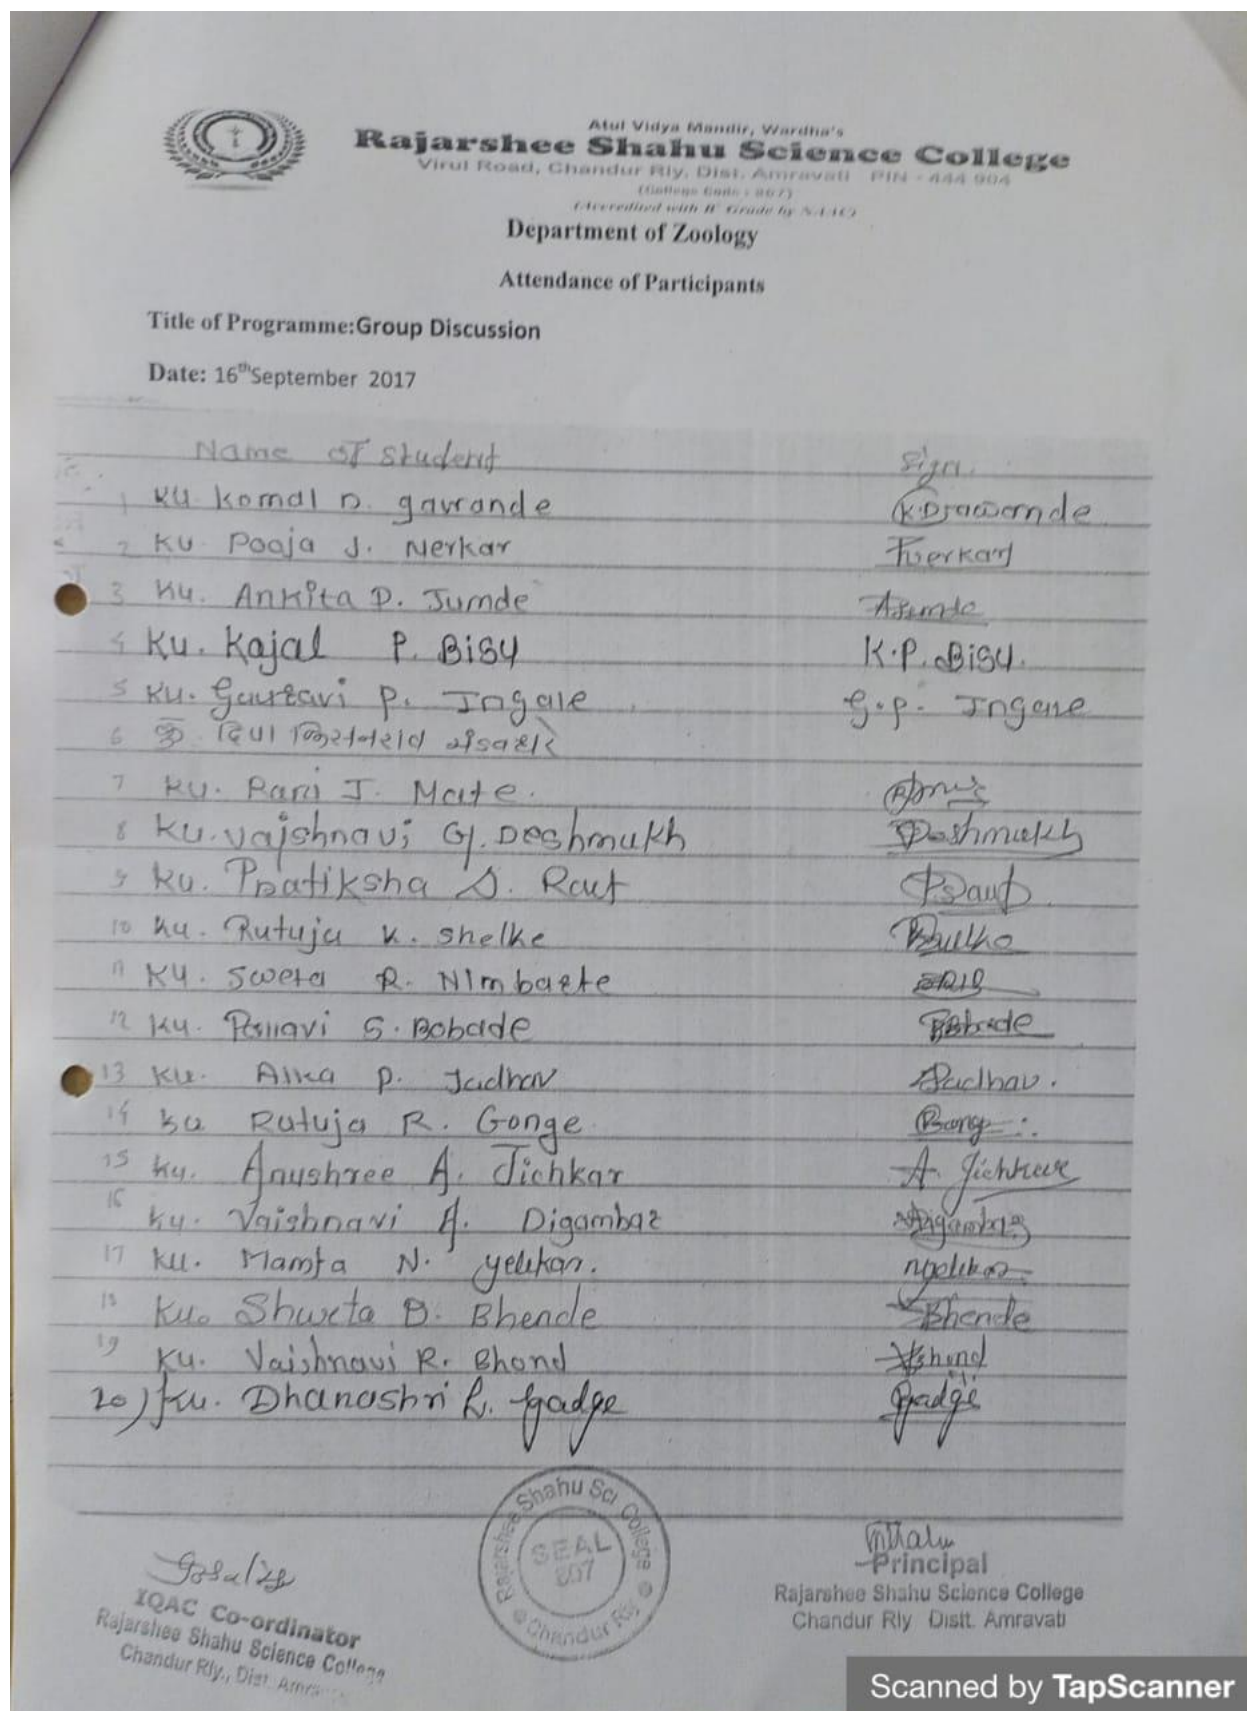 Atul Vidya Mandir, Wardha's
Rajarshee Shahu Science College
Virul Road, Chandur Rly, Dist. Amravati PIN - 444 904
(College Code - 807)
(Accredited with B Grade by NAAC)
Department of Zoology
Attendance of Participants
Title of Programme:Group Discussion
Date: 16th September 2017
Name of student Sign.
1 Ku. Komal D. gavrande
2 Ku. Pooja J. Nerkar
3 Ku. Ankita P. Jumde
4 Ku. Kajal P. Bisy K.P. Bisy.
5 Ku. Gaurtavi P. Ingale G.P. Ingale
6 कु. दिपा किसनराव
7 Ku. Rani J. Mate.
8 Ku. Vaishnavi G. Deshmukh Deshmukh
9 Ku. Pratiksha S. Raut P.S.Raut
10 Ku. Rutuja V. Shelke
11 Ku. Sweta R. Nimbarte
12 Ku. S. Bobade Bobade
13 Ku. Alka P. Jadhav Jadhav.
14 Ku Rutuja R. Gonge
15 Ku. Anushree A. Jichkar A. Jichkar
16 Ku. Vaishnavi A. Digambar Digambar
17 Ku. Mamta N. Yelekar.
18 Ku. Shweta B. Bhende Bhende
19 Ku. Vaishnavi R. Bhond Bhond
20) Ku. Dhanashri R. Gadge Gadge
Rajarshee Shahu Sci. College
SEAL
807
Chandur Rly
IQAC Co-ordinator
Rajarshee Shahu Science College
Chandur Rly., Dist. Amra
Principal
Rajarshee Shahu Science College
Chandur Rly Distt. Amravati
Scanned by TapScanner